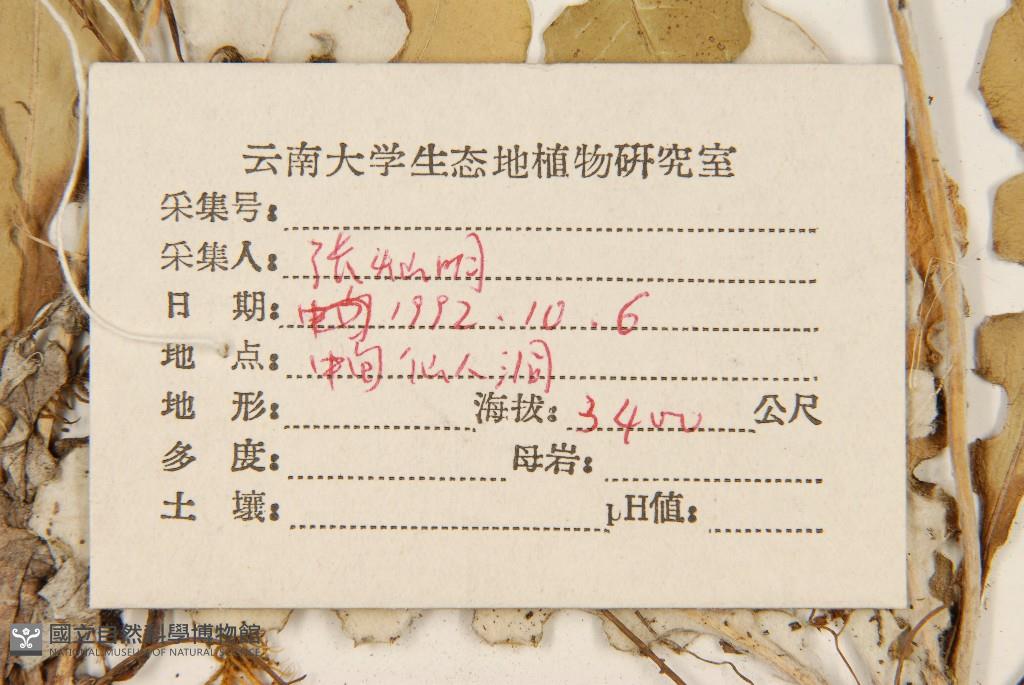 云南大学生态地植物研究室
采集号:
采集人: 张灿明
日 期: 1992.10.6
地 点: 中甸仙人洞
地 形: 海拔: 3400 公尺
多 度: 母岩:
土 壤: pH值:
國立自然科學博物館
NATIONAL MUSEUM OF NATURAL SCIENCE